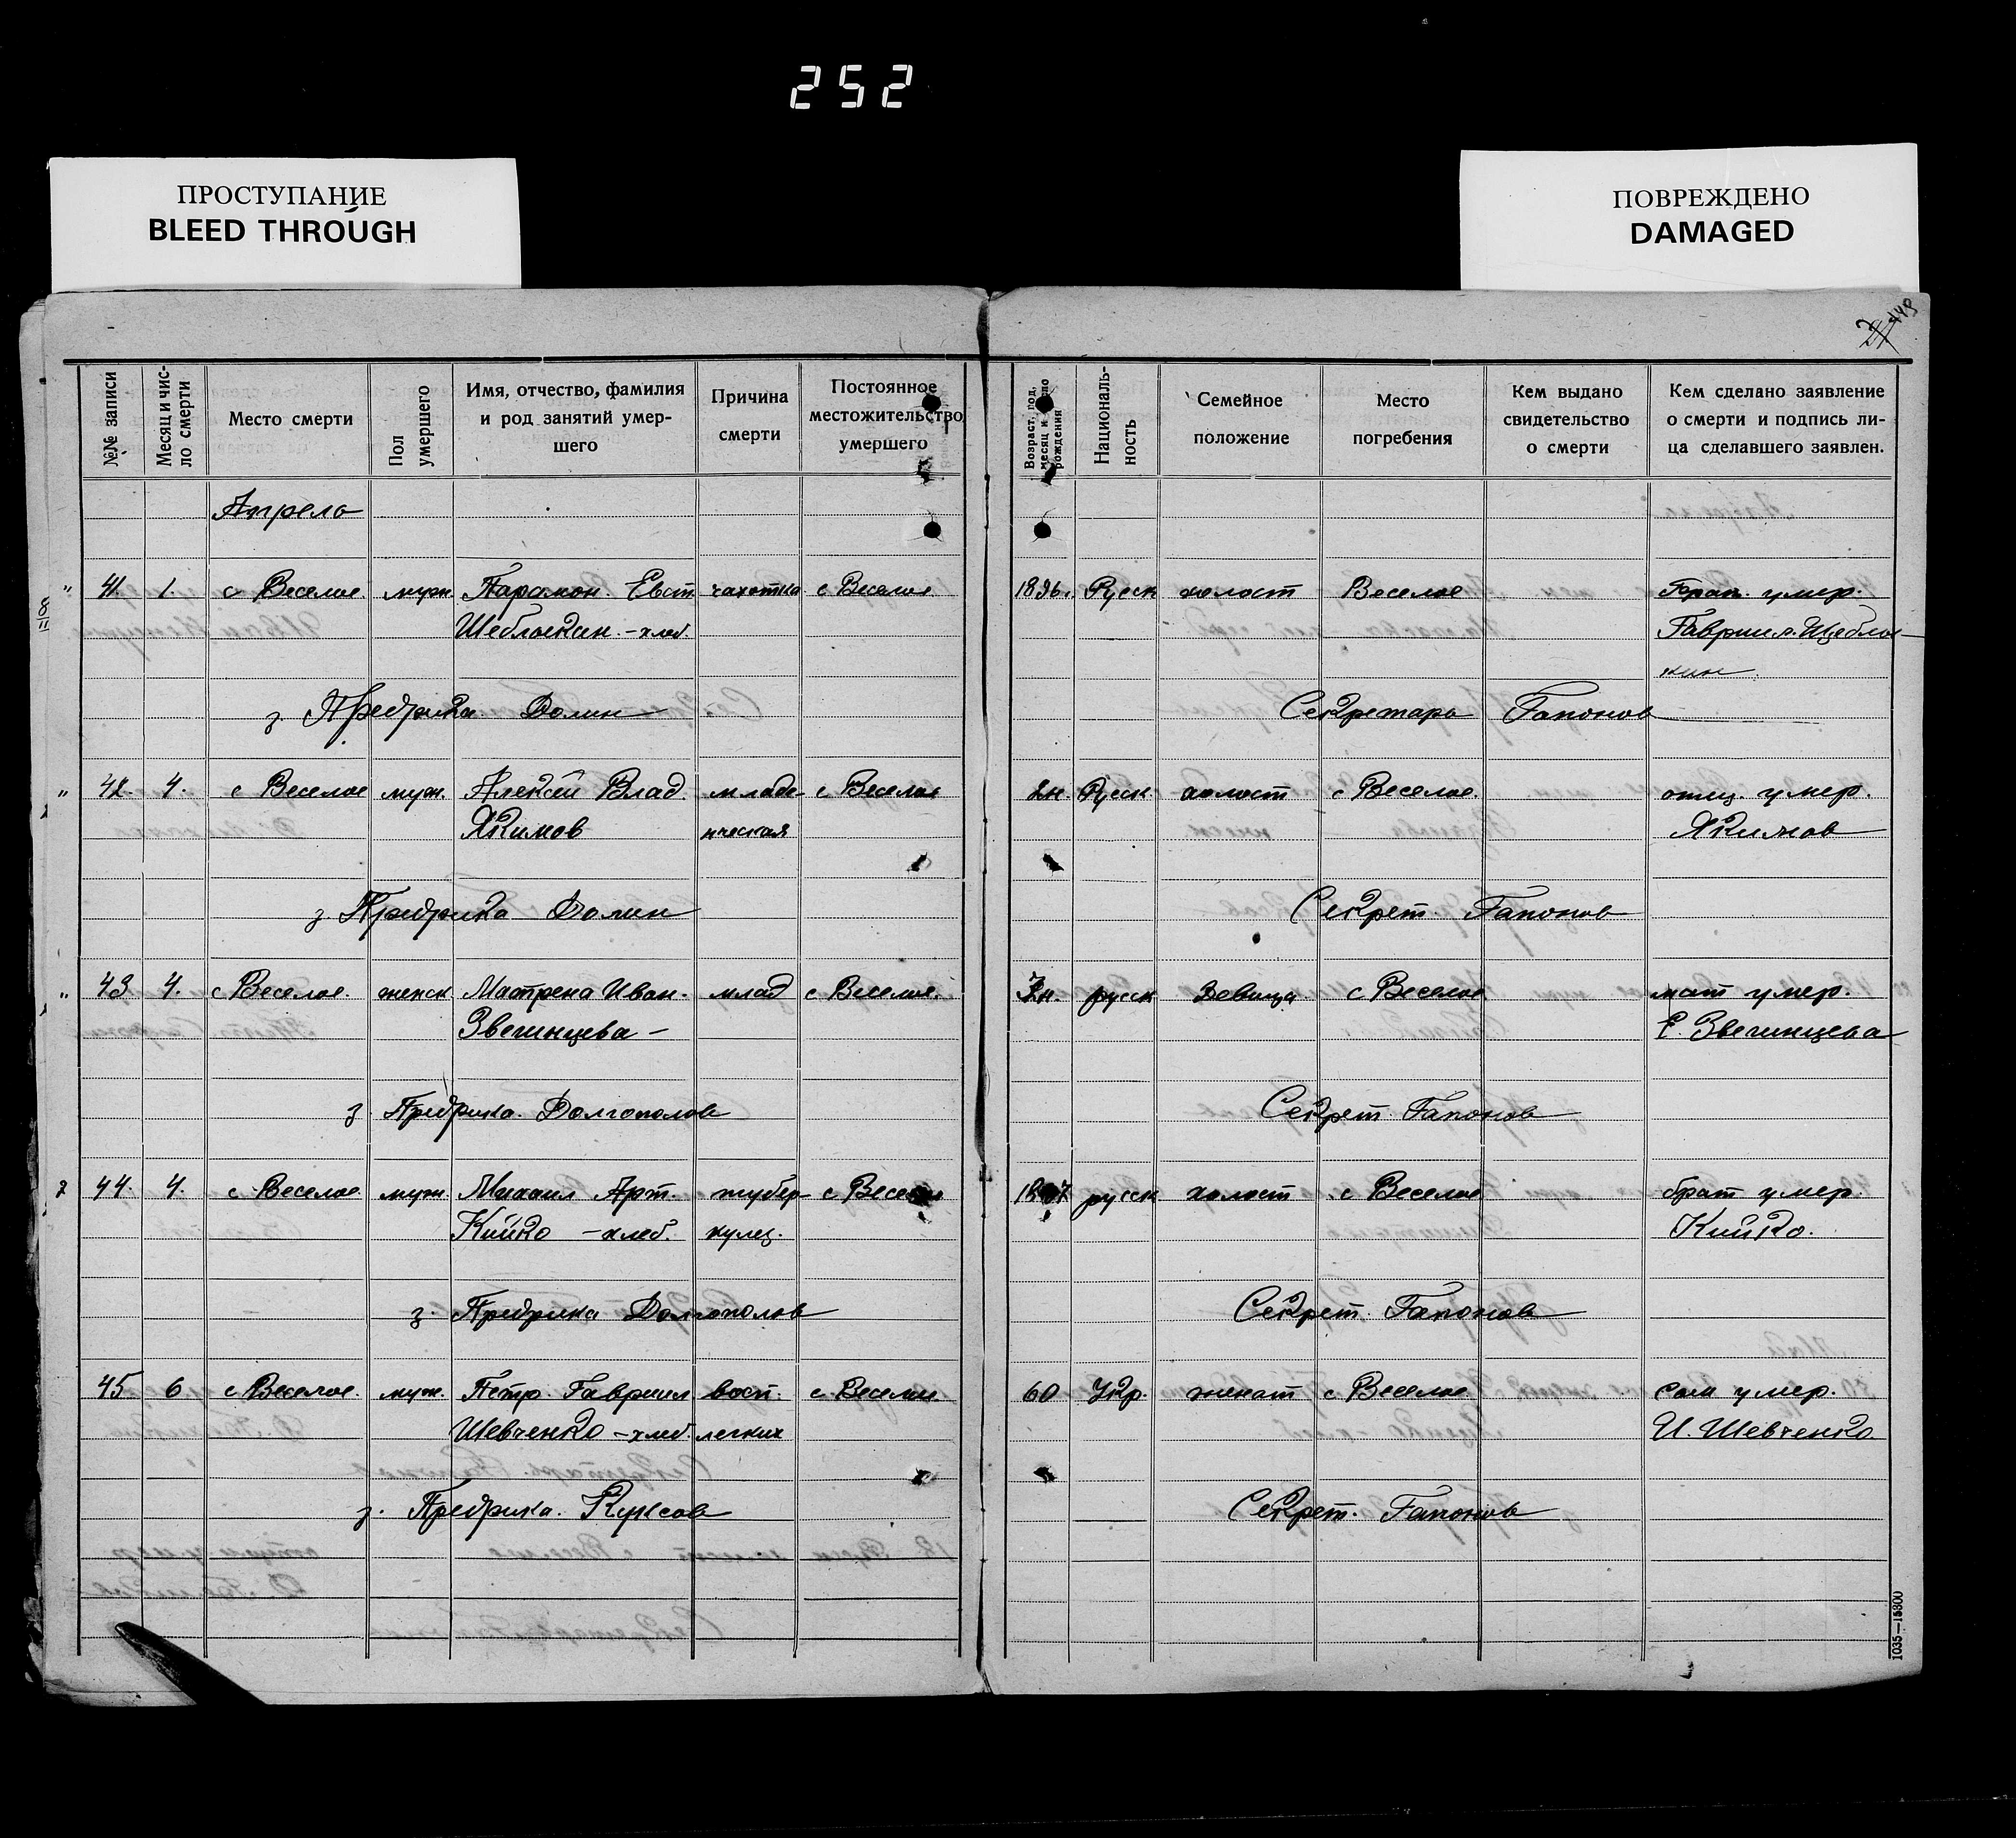 252
ПРОСТУПАНИЕ
BLEED THROUGH
ПОВРЕЖДЕНО
DAMAGED
№№ записи
Месяц и чис-
ло смерти
Место смерти
Пол
умершего
Имя, отчество, фамилия
и род занятий умер-
шего
Причина
смерти
Постоянное
местожительство
умершего
Возраст, год,
месяц и число
рождения
Националь-
ность
Семейное
положение
Место
погребения
Кем выдано
свидетельство
о смерти
Кем сделано заявление
о смерти и подпись ли-
ца сделавшего заявлен.
Апрель
" 41. 1. с Веселое муж. Парамон Евст. чахотка с Веселое 1896 г. Русск холост Веселое умер.
Шеблыкин - хлеб. Гавриил Щеблы-
кин
з. Предрика Долин Секретарь Гапонов
" 42. 4. с Веселое муж. Алексей Влад. младе- с Веселое 2 н. Русск. холост с Веселое отец умер.
Якимов нческая Якимов
з. Предрика Долин Секрет. Гапонов
" 43 4. с Веселое женск Матрена Иван. млад с Веселое н. русск Девица с Веселое мат умер.
Звегинцева - Е. Звегинцева
з Предрика Долгополов Секрет. Гапонов
2 44. 4. с Веселое муж. Михаил Арт. тубер- с Веселое русск холост с Веселое брат умер.
Кийко - хлеб. кулез. Кийко.
з. Предрика Долгополов Секрет. Гапонов
45 6 с Веселое муж. Петр Гавриил восп. с Веселое 60 Укр. женат с Веселое сын умер.
Шевченко - хлеб. легких И. Шевченко
з. Предрика Секрет. Гапонов
1035—15300